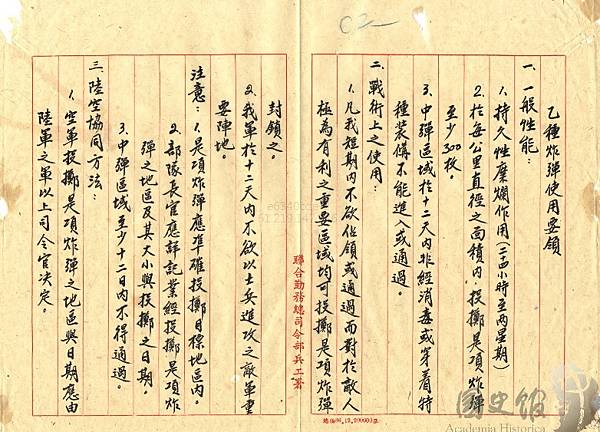 乙種炸彈使用要領
一、一般性能：
1.持久性糜爛作用(二四小時至兩星期)
2.於每公里直徑之面積內，投擲是項炸彈
至少300枚。
3.中彈區域於十二天內非經消毒或穿着特
種裝備不能進入或通過。
二、戰術上之使用：
1.凡我短期內不欲佔領或通過而對於敵人
極為有利之重要區域均可投擲是項炸彈
聯合勤務總司令部兵工署
封鎖之。
2.我軍於十二天內不欲以士兵進攻之敵軍重
要陣地。
注意：1.是項炸彈應準確投擲目標地區內。
2.部隊長官應詳記業經投擲是項炸
彈之地區及其大小與投擲之日期。
3.中彈區域至少十二日內不得通過。
三、陸空協同方法：
1.空軍投擲是項炸彈之地區與日期應由
陸軍之軍以上司令官決定。
國史館
Academia Historica